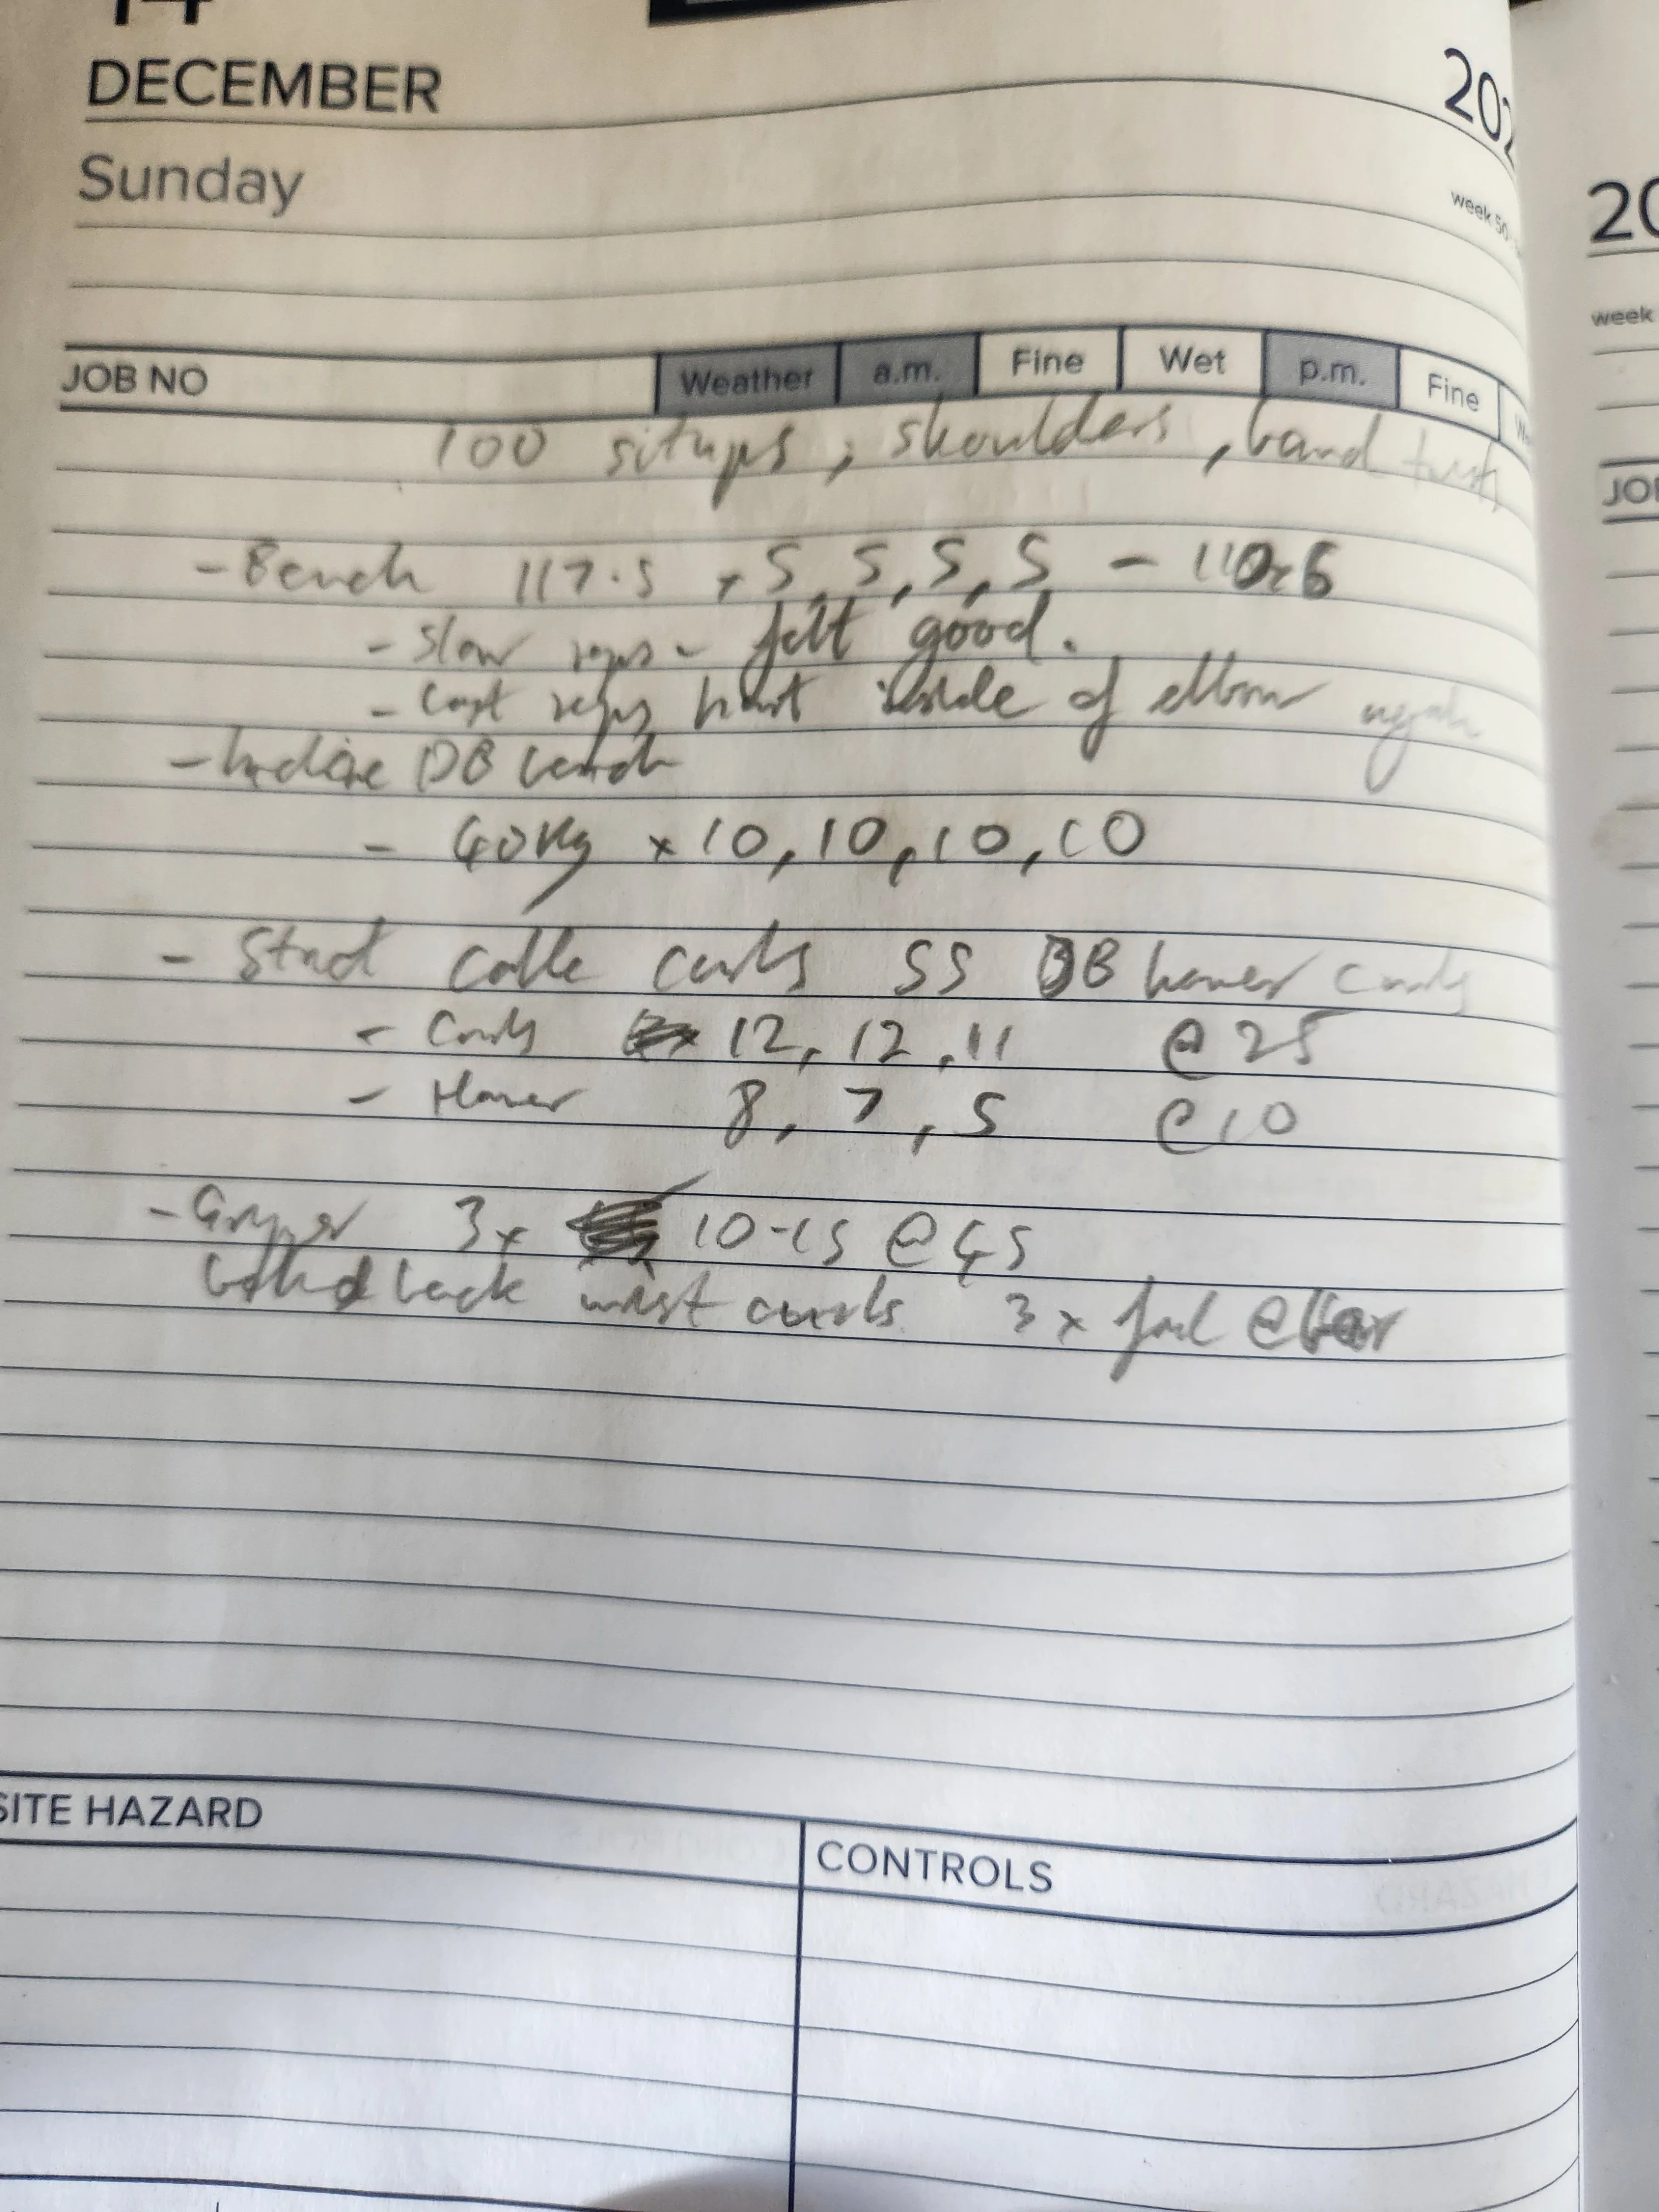 14
DECEMBER
202
Sunday
week 50
JOB NO Weather a.m. Fine Wet p.m. Fine
100 situps, shoulders, band
- Bench 117.5 x 5, 5, 5, 5 - 110x6
- Slow reps - felt good.
- Last reps hurt inside of elbow again
- Incline DB bench
- 40kg x 10, 10, 10, 10
- cable curls SS DB hamer curls
- Curls 12, 12, 11 @ 25
- Hamer 8, 7, 5 @ 10
- Gripper 3x 10-15 @ 45
back wrist curls 3 x fail @ bar
SITE HAZARD
CONTROLS
20
week
JO